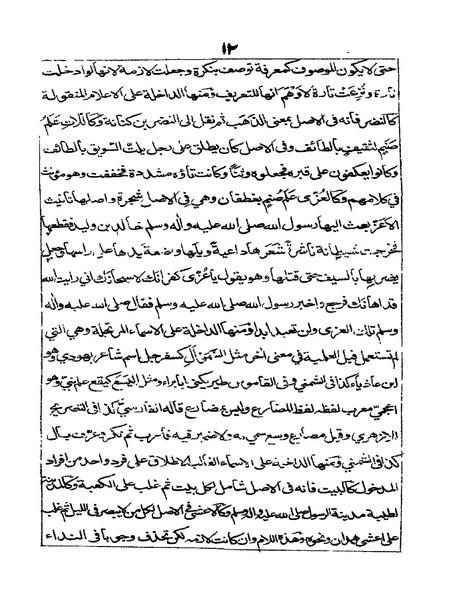 ١٢
حتى لايكون للموصوف كمعرفة توصف بنكرة وجعلت لازمة لانها لوادخلت
تارة ونزعت تارة لاوهم انها للتعريف ومنها الداخلة على الاعلام المنقولة
كالنضر فانه فى الاصل بمعنى الذهب ثم نقل الى النضر بن كنانة وكاللات علم
صنم لثقيف بالطائف وفى الاصل كان يطلق على رجل يلت السويق بالطائف
وكانوا يعكفون على قبره فجعلوه وثنا وكانت تاؤه مشددة فخففت وهو مؤنث
فى كلامهم وكالعزى علم صنم لغطفان وهى فى الاصل شجرة واصلها تانيث
الاعز بعث اليها رسول الله صلى الله عليه واله وسلم خالد بن وليد فقطعها
فخرجت شيطانة ناشرة شعرها داعية ويلها واضعة يدها على راسها فجعل
يضربها بالسيف حتى قتلها وهو يقول ياعزى كفرانك لا سبحانك انى رايت الله
قد اهانك فرجع واخبر رسول الله صلى الله عليه وسلم فقال صلى الله عليه واله
وسلم تلك العزى ولن تعبد ابدا ومنها الداخلة على الاسماء المرتجلة وهى التى
لم تستعمل قبل العلمية فى معنى اخر مثل السموأل كسفرجل اسم شاعر يهودى وهو
ابن عاذياء كذا فى الشمنى وفى القاموس طير يكنى ابا براء ومثل اليسع كيقع علم نبى وهو
اعجمى معرب لفظه لفظ المضارع وليس مضارع قاله الفارسى كذا فى التصريح
للازهرى وقيل مضارع وسع سمى به ولا ضمير فيه فاعرب ثم نكر وعرف بال
كذا فى الشمنى ومنها الداخلة على الاسماء الغالبة الاطلاق على فرد واحد من افراد
المدخول كالبيت فانه فى الاصل شامل لكل بيت ثم غلب على الكعبة وكالمدينة
لطيبة مدينة الرسول صلى الله عليه واله وسلم وكالاعشى فى الاصل لكل من لا يبصر فى الليل ثم غلب
على اعشى همدان ونحوه وهذه اللام وان كانت لازمة لكن تحذف وجوبا فى النداء